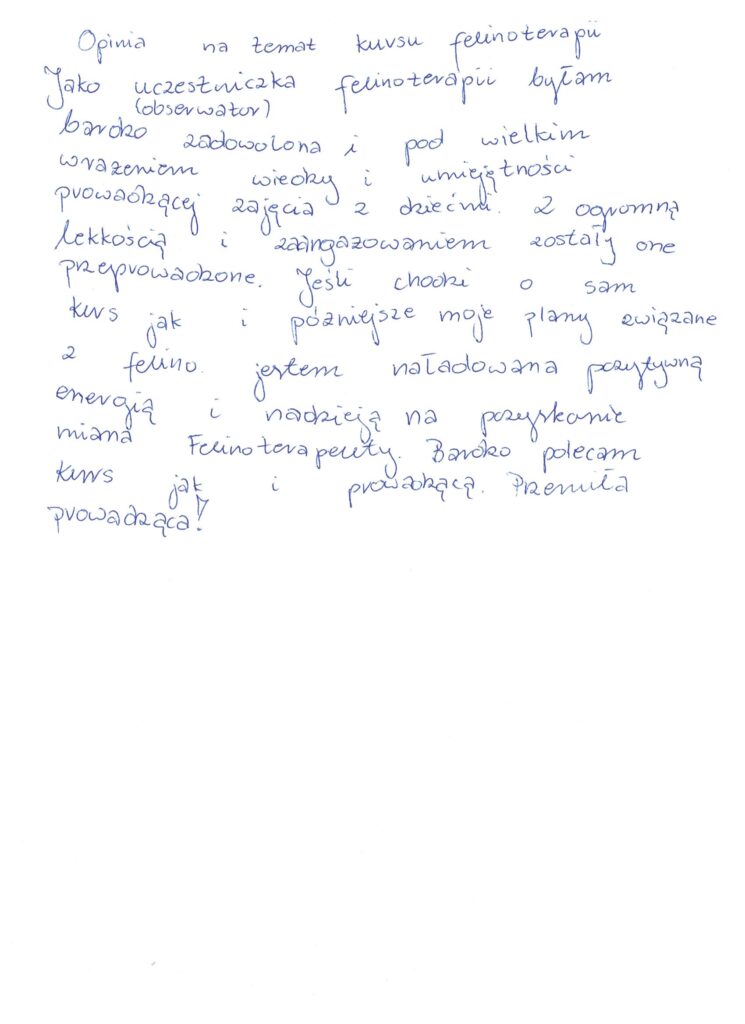 Opinia na temat kursu felinoterapii
Jako uczestniczka felinoterapii byłam
(obserwator)
bardzo zadowolona i pod wielkim
wrażeniem wiedzy i umiejętności
prowadzącej zajęcia z dziećmi. Z ogromną
lekkością i zaangażowaniem zostały one
przeprowadzone. Jeśli chodzi o sam
kurs jak i późniejsze moje plany związane
z felino. jestem naładowana pozytywną
energią i nadzieją na pozyskanie
miana Felinoterapeuty. Bardzo polecam
kurs jak i prowadzącą. Przemiła
prowadząca!